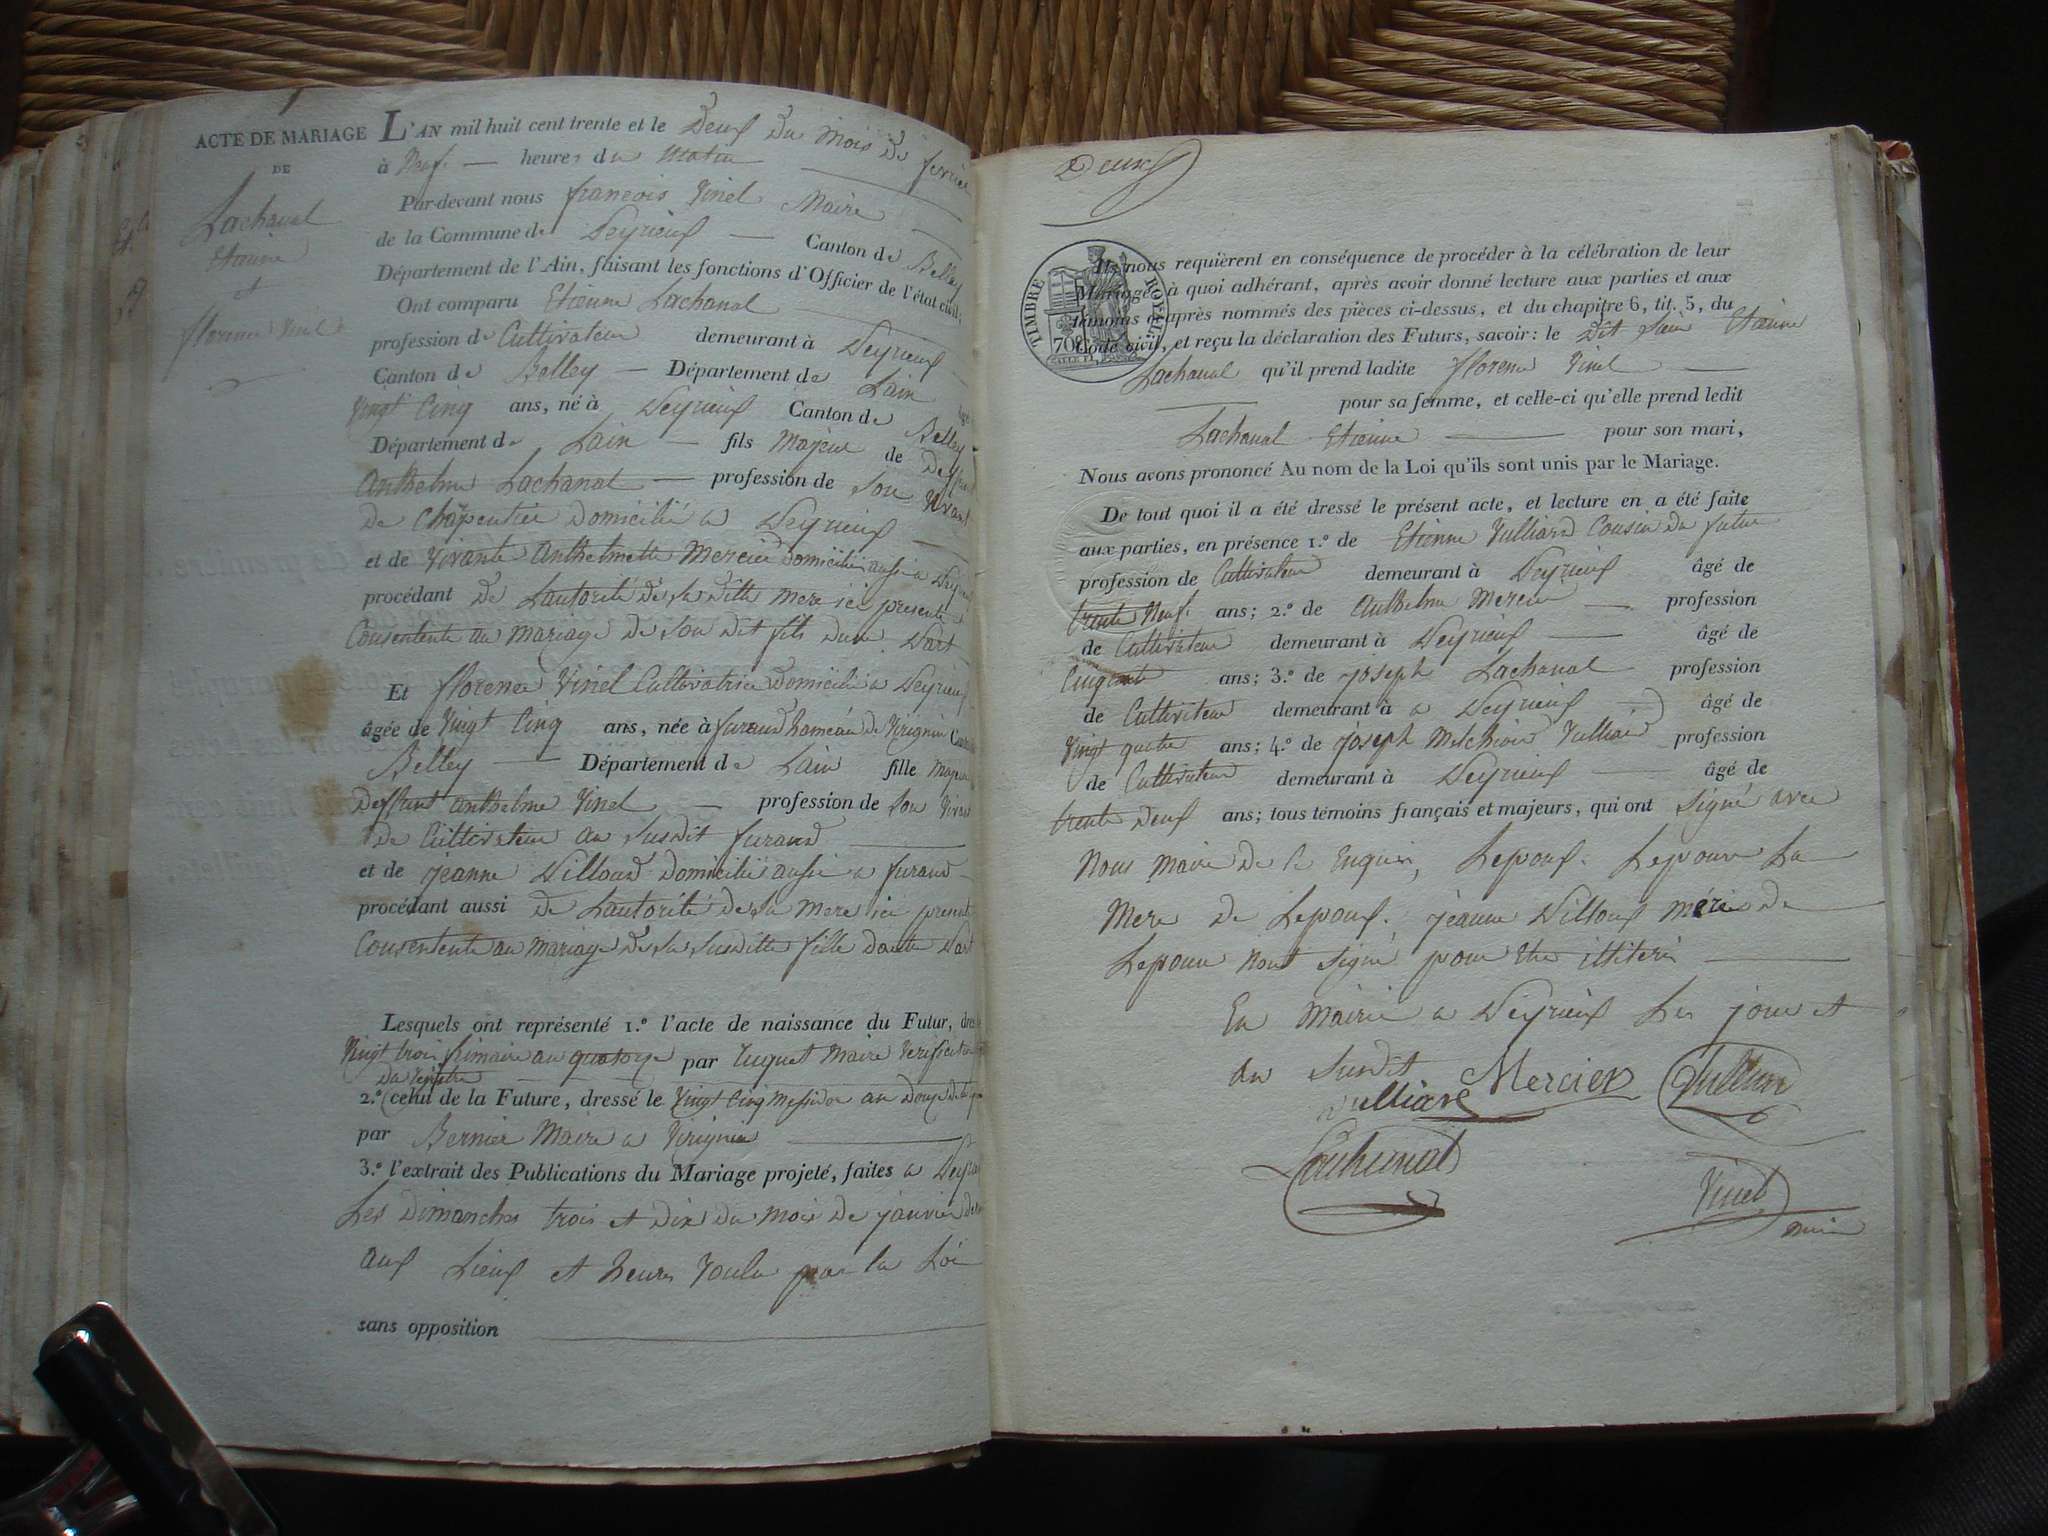 ACTE DE MARIAGE
DE
Lachanal
Etienne
et
florence Vinel
L'AN mil huit cent trente et le Deux Du Mois De fevrier
à Neuf heures du Matin
Par-devant nous francois Vinel Maire
de la Commune de Peyrieux Canton de Belley
Département de l'Ain, faisant les fonctions d'Officier de l'état civil.
Ont comparu Etienne Lachanal
profession de Cultivateur demeurant à Peyrieux
Canton de Belley Département de Lain âgé
Vingt Cinq ans, né à Peyrieux Canton de Belley
Département de Lain fils Majeur de Deffunt
Anthelme Lachanal profession de Son Vivant
De Charpentier Domicilié a Peyrieux
et de Vivante Anthelmette Mercier Domicilié aussi a Peyrieux
procédant De Lautorité De sa ditte mere ici presente et
Consentente au mariage De Son Dit fils Dune Part
Et florence Vinel Cultivatrice Domicilié a Peyrieux
âgée de Vingt Cinq ans, née à furans hameau De Virignin Canton
Belley Département de Lain fille Majeure
Deffunt anthelme Vinel profession de Son Vivant
De Cultivateur au Susdit furans
et de jeanne Billoud Domicilié aussi a furans
procédant aussi De Lautorité de sa Mere ici presente
Consentente au mariage De sa Susditte fille Dautre Part
Lesquels ont représenté 1.º l'acte de naissance du Futur, dressé
Vingt trois frimaire an quatorze par Tuquet Maire Verification
Du Registre
2.º celui de la Future, dressé le Vingt Cinq Messidor an Douze
par Bernier Maire a Virignin
3.º l'extrait des Publications du Mariage projeté, faites a Peyrieux
Les Dimanches trois et Dix Du Mois De janvier
aux Lieux et heures Voulu par la Loi
sans opposition
Deux
TIMBRE ROYAL
70
Ils nous requièrent en conséquence de procéder à la célébration de leur
Mariage, à quoi adhérant, après avoir donné lecture aux parties et aux
témoins ci-après nommés des pièces ci-dessus, et du chapitre 6, tit. 5, du
Code civil, et reçu la déclaration des Futurs, savoir: le Dit Sieur Etienne
Lachanal qu'il prend ladite florence Vinel
pour sa femme, et celle-ci qu'elle prend ledit
Lachanal Etienne pour son mari,
Nous avons prononcé Au nom de la Loi qu'ils sont unis par le Mariage.
De tout quoi il a été dressé le présent acte, et lecture en a été faite
aux parties, en présence 1.º de Etienne Vulliard Cousin du futur
profession de Cultivateur demeurant à Peyrieux âgé de
trente Neuf ans; 2.º de Anthelme Mercier profession
de Cultivateur demeurant à Peyrieux âgé de
Cinquante ans; 3.º de joseph Lachanal profession
de Cultivateur demeurant à a Peyrieux âgé de
Vingt quatre ans; 4.º de joseph Melchior Vulliard profession
de Cultivateur demeurant à Peyrieux âgé de
trente Deux ans; tous témoins français et majeurs, qui ont Signé avec
Nous Maire De ce Enquis, Lepoux. Lepouse La
Mere De Lepoux. jeanne Billoud mére De
Lepouse Nont Signé pour Etre illiteré
En Mairie a Peyrieux Les jour et
an Susdit
Vulliard Mercier Vulliard
Lachanal
Vinel
maire